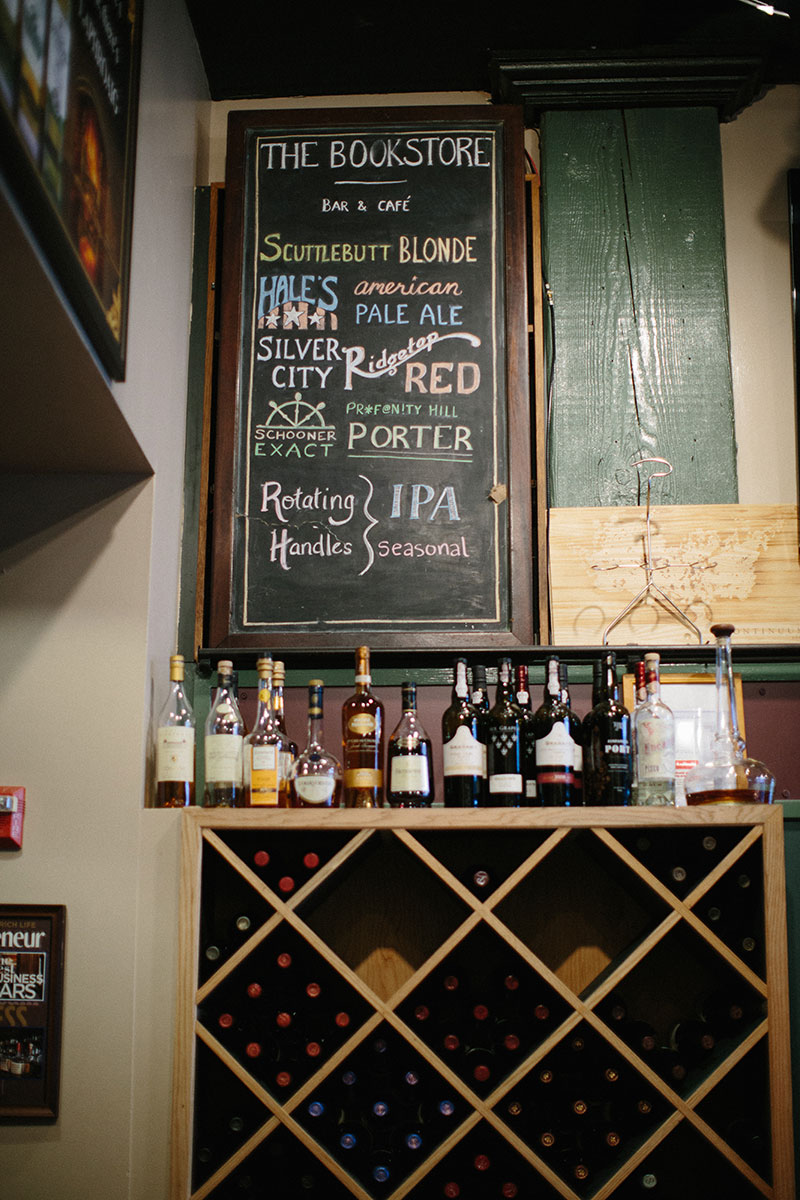 THE BOOKSTORE
BAR & CAFÉ
SCUTTLEBUTT BLONDE
HALE'S american
PALE ALE
SILVER Ridgetop
CITY RED
SCHOONER PR*F@N!TY HILL
EXACT PORTER
Rotating IPA
Handles seasonal
PORT
RICH LIFE
neur
BUSINESS
ARS